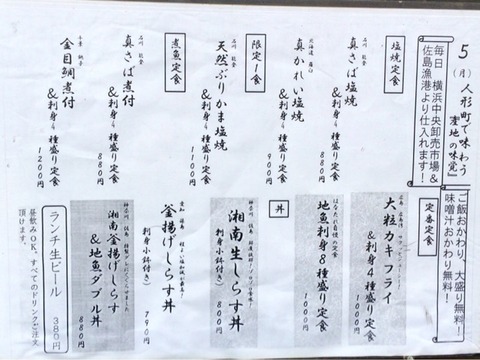 5(月) 人形町で味わう
『産地の味覚』
毎日 横浜中央卸売市場&
佐島漁港より仕入れます!
塩焼定食
真さば塩焼
&刺身4種盛り定食
880円
北海道
真かれい塩焼
&刺身4種盛り定食
900円
限定1食
天然ぶりかま塩焼
&刺身4種盛り定食
1100円
煮魚定食
真さば煮付
&刺身4種盛り定食
880円
千葉 銚子
金目鯛煮付
&刺身4種盛り定食
1200円
ご飯おかわり、大盛り無料!
味噌汁おかわり無料!
定番定食
大粒カキフライ
&刺身4種盛り定食
1000円
地魚刺身8種盛り定食
1000円
丼
湘南生しらす丼
刺身小鉢付き
800円
釜揚げしらす丼
刺身小鉢付き
790円
湘南釜揚げしらす
&地魚ダブル丼
880円
ランチ生ビール
380円
昼飲みOK、すべてのドリンクご注文
頂けます。